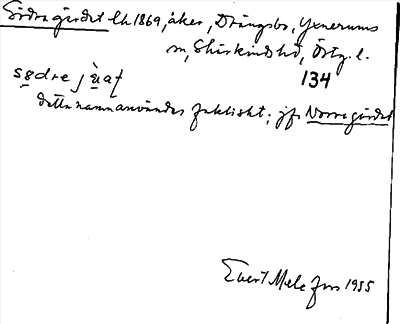 Södra gärdet lh 1869, åker, Drängsbo, Yxnerums
sn, Skärkinds hd, Östg. l.
134
sødre jùaţ
detta namn användes faktiskt; jfr Norra gärdet
Evert Melefors 1955